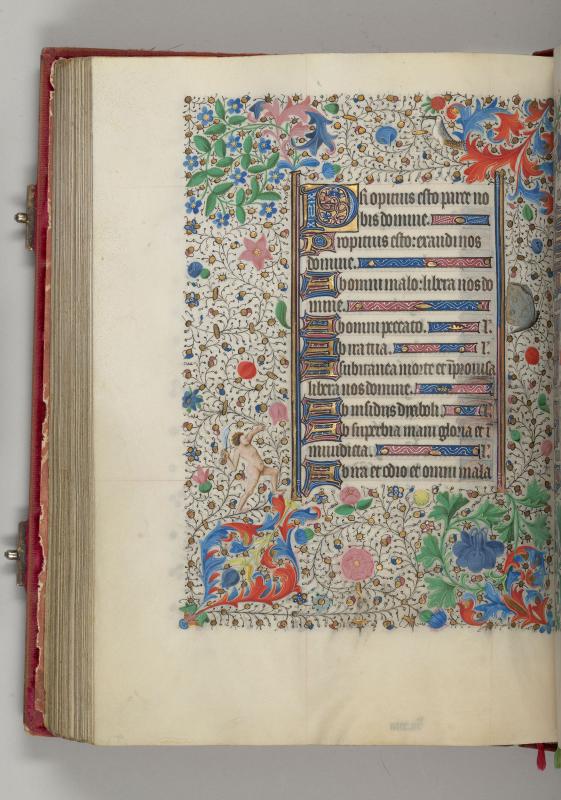 Propitius esto parce no
bis domine.
Propitius esto: exaudi nos
domine.
Ab omni malo: libera nos do
mine.
Ab omni peccato. l'.
Ab ira tua. l'.
A subitanea morte et īprouisa
libera nos domine.
Ab insidiis dyaboli. l'.
A superbia inani gloria et ī
mundicia. l'.
Ab ira et odio et omni mala